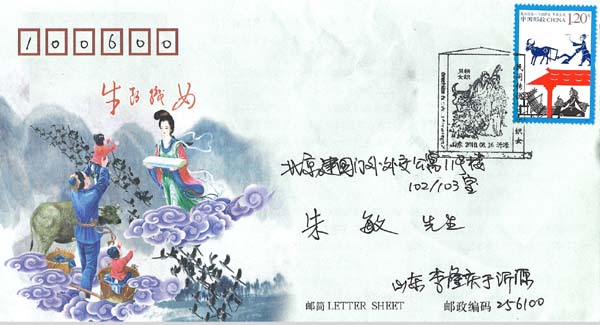 100600
中国邮政 CHINA
1.20元
牛郎织女
山东 2010.08.16 沂源
北京建国门外外交公寓11号楼
102/103室
朱敏 先生
山东 李隆庆于沂源
邮简 LETTER SHEET 邮政编码 256100